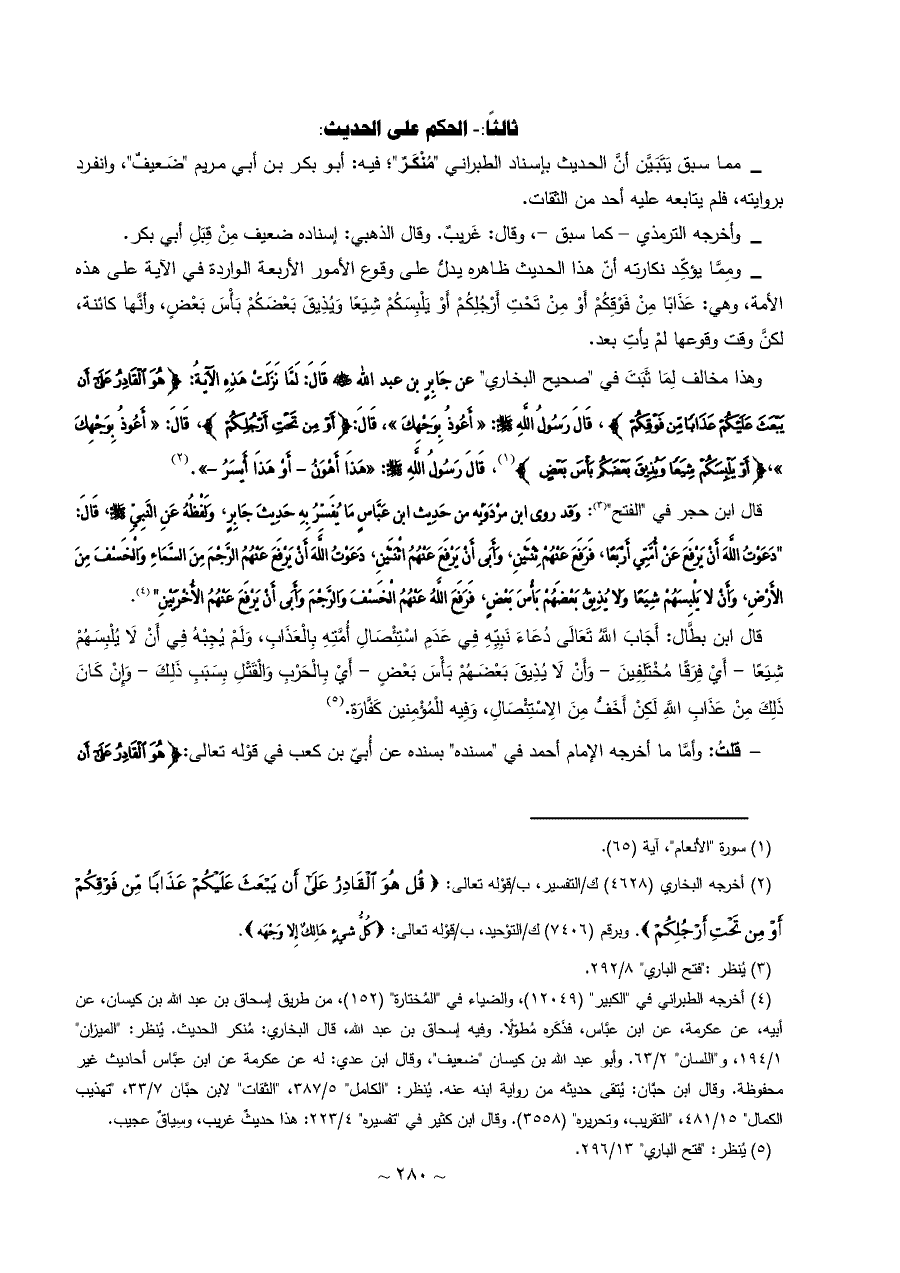 ثالثًا:- الحكم على الحديث:
_ مما سبق يَتَبَيَّن أنَّ الحديث بإسناد الطبراني "مُنْكَرٌ"؛ فيه: أبو بكر بن أبي مريم "ضَعيفٌ"، وانفرد
بروايته، فلم يتابعه عليه أحد من الثقات.
_ وأخرجه الترمذي – كما سبق –، وقال: غَريبٌ. وقال الذهبي: إسناده ضعيف مِنْ قِبَلِ أبي بكر.
_ ومِمَّا يؤكِّد نكارته أنّ هذا الحديث ظاهره يدلُّ على وقوع الأمور الأربعة الواردة في الآية على هذه
الأمة، وهي: عَذَابًا مِنْ فَوْقِكُمْ أَوْ مِنْ تَحْتِ أَرْجُلِكُمْ أَوْ يَلْبِسَكُمْ شِيَعًا وَيُذِيقَ بَعْضَكُمْ بَأْسَ بَعْضٍ، وأنَّها كائنة،
لكنَّ وقت وقوعها لمْ يأتِ بعد.
وهذا مخالف لِمَا ثَبَتَ في "صحيح البخاري" عن جَابِرٍ بن عبد الله ﷺ قَالَ: لَمَّا نَزَلَتْ هَذِهِ الآيَةُ: ﴿ هُوَ ٱلْقَادِرُ عَلَىٰٓ أَن
يَبْعَثَ عَلَيْكُمْ عَذَابًا مِّن فَوْقِكُمْ ﴾، قَالَ رَسُولُ اللَّهِ ﷺ: « أَعُوذُ بِوَجْهِكَ »، قَالَ:﴿ أَوْ مِن تَحْتِ أَرْجُلِكُمْ ﴾، قَالَ: « أَعُوذُ بِوَجْهِكَ
»،﴿ أَوْ يَلْبِسَكُمْ شِيَعًا وَيُذِيقَ بَعْضَكُم بَأْسَ بَعْضٍ ﴾(١)، قَالَ رَسُولُ اللَّهِ ﷺ: «هَذَا أَهْوَنُ – أَوْ هَذَا أَيْسَرُ –».(٢)
قال ابن حجر في "الفتح"(٣): وَقد روى ابن مرْدَوَيْه من حَدِيث ابن عَبَّاسٍ مَا يُفَسِّرُ بِهِ حَدِيثَ جَابِرٍ، وَلَفْظُهُ عَنِ النَّبِيِّ ﷺ، قَالَ:
"دَعَوْتُ اللَّهَ أَنْ يَرْفَعَ عَنْ أُمَّتِي أَرْبَعًا، فَرَفَعَ عَنْهُمْ ثِنْتَيْنِ، وَأَبَى أَنْ يَرْفَعَ عَنْهُمُ اثْنَتَيْنِ، دَعَوْتُ اللَّهَ أَنْ يَرْفَعَ عَنْهُمُ الرَّجْمَ مِنَ السَّمَاءِ وَالْخَسْفَ مِنَ
الأَرْضِ، وَأَنْ لا يَلْبِسَهُمْ شِيَعًا وَلا يُذِيقَ بَعْضَهُمْ بَأْسَ بَعْضٍ، فَرَفَعَ اللَّهُ عَنْهُمُ الْخَسْفَ وَالرَّجْمَ وَأَبَى أَنْ يَرْفَعَ عَنْهُمُ الأُخْرَيَيْنِ"(٤).
قال ابن بطَّال: أَجَابَ اللَّهُ تَعَالَى دُعَاءَ نَبِيِّهِ فِي عَدَمِ اسْتِئْصَالِ أُمَّتِهِ بِالْعَذَابِ، وَلَمْ يُجِبْهُ فِي أَنْ لَا يُلْبِسَهُمْ
شِيَعًا – أَيْ فِرَقًا مُخْتَلِفِينَ – وَأَنْ لَا يُذِيقَ بَعْضَهُمْ بَأْسَ بَعْضٍ – أَيْ بِالْحَرْبِ وَالْقَتْلِ بِسَبَبِ ذَلِكَ – وَإِنْ كَانَ
ذَلِكَ مِنْ عَذَابِ اللَّهِ لَكِنْ أَخَفُّ مِنَ الِاسْتِئْصَالِ، وَفِيه لِلْمُؤْمِنِين كَفَّارَة.(٥)
– قلتُ: وأمَّا ما أخرجه الإمام أحمد في "مسنده" بسنده عن أُبيّ بن كعب في قوْله تعالى:﴿ هُوَ ٱلْقَادِرُ عَلَىٰٓ أَن
(١) سورة "الأنعام"، آية (٦٥).
(٢) أخرجه البخاري (٤٦٢٨) ك/التفسير، ب/قوْله تعالى: ﴿ قُلْ هُوَ ٱلْقَادِرُ عَلَىٰٓ أَن يَبْعَثَ عَلَيْكُمْ عَذَابًا مِّن فَوْقِكُمْ
أَوْ مِن تَحْتِ أَرْجُلِكُمْ ﴾. وبرقم (٧٤٠٦) ك/التوْحيد، ب/قوْله تعالى: ﴿كُلُّ شَيْءٍ هَالِكٌ إِلا وَجْهَه ﴾.
(٣) يُنظر :"فتح الباري" ٢٩٢/٨.
(٤) أخرجه الطبراني في "الكبير" (١٢٠٤٩)، والضياء في "المُختارة" (١٥٢)، من طريق إسحاق بن عبد الله بن كيسان، عن
أبيه، عن عكرمة، عن ابن عبَّاس، فذَكَره مُطوّلًا. وفيه إسحاق بن عبد الله، قال البخاري: مُنكر الحديث. يُنظر: "الميزان"
١٩٤/١، و"اللسان" ٦٣/٢. وأبو عبد الله بن كيسان "ضعيف"، وقال ابن عدي: له عن عكرمة عن ابن عبَّاس أحاديث غير
محفوظة. وقال ابن حبَّان: يُتقى حديثه من رواية ابنه عنه. يُنظر: "الكامل" ٣٨٧/٥، "الثقات" لابن حبَّان ٣٣/٧، "تهذيب
الكمال" ٤٨١/١٥، "التقريب، وتحريره" (٣٥٥٨). وقال ابن كثير في "تفسيره" ٢٢٣/٤: هذا حديثٌ غريب، وسِياقٌ عجيب.
(٥) يُنظر: "فتح الباري" ٢٩٦/١٣.
~ ٢٨٠ ~